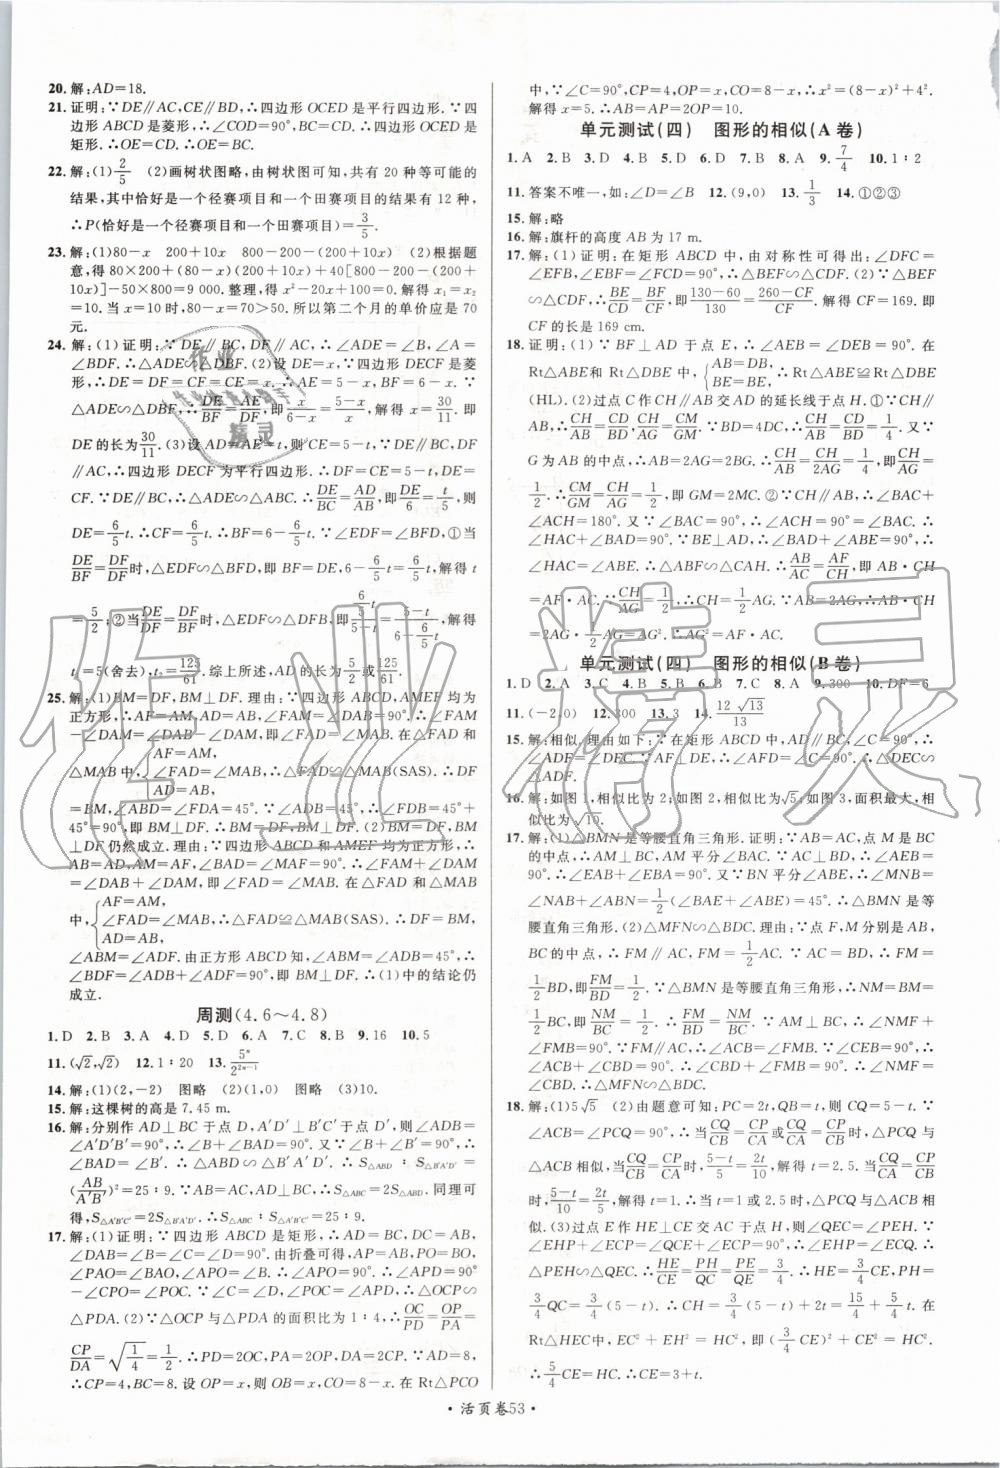 20. 解:AD=18.
21. 证明:∵DE∥AC,CE∥BD,∴四边形OCED是平行四边形.∵四
边形ABCD是菱形,∴∠COD=90°,BC=CD.∴四边形OCED是
矩形.∴OE=CD.∴OE=BC.
22. 解:(1)2/5 (2)画树状图略,由树状图可知,共有20种等可能的
结果,其中恰好是一个径赛项目和一个田赛项目的结果有12种,
∴P(恰好是一个径赛项目和一个田赛项目)=3/5.
23. 解:(1)80-x 200+10x 800-200-(200+10x) (2)根据题
意,得80×200+(80-x)(200+10x)+40[800-200-(200+
10x)]-50×800=9 000. 整理,得x²-20x+100=0. 解得x₁=x₂=
10. 当x=10时,80-x=70>50. 所以第二个月的单价应是70
元.
24. 解:(1)证明:∵DE∥BC,DF∥AC,∴∠ADE=∠B,∠A=
∠BDF.∴△ADE∽△DBF. (2)设DE=x.∵四边形DECF是菱
形,∴DE=DF=CF=CE=x.∴AE=5-x,BF=6-x.∵
△ADE∽△DBF,∴DE/BF=AE/DF,即x/(6-x)=(5-x)/x,解得x=30/11.即
DE的长为30/11. (3)设AD=AE=t,则CE=5-t,∵DE∥BC,DF
∥AC,∴四边形DECF为平行四边形.∴DF=CE=5-t,DE=
CF.∵DE∥BC,∴△ADE∽△ABC.∴DE/BC=AD/AB,即DE/6=t/5,则
DE=6/5t.∴CF=6/5t.∴BF=6-6/5t.∵∠EDF=∠BFD,①当
DE/BF=DF/DF时,△EDF∽△BFD,即DE=BF,∴6/5t=6-6/5t,解得t
=5/2;②当DE/DF=DF/BF时,△EDF∽△DFB,即(6/5t)/(5-t)=(5-t)/(6-6/5t),解得
t=5(舍去),t=125/61.综上所述,AD的长为5/2或125/61.
25. 解:(1)BM=DF,BM⊥DF. 理由:∵四边形ABCD,AMEF均为
正方形,∴AF=AM,AD=AB,∠FAM=∠DAB=90°.∴∠FAM
-∠DAM=∠DAB-∠DAM,即∠FAD=∠MAB.在△FAD和
△MAB中,{AF=AM,∠FAD=∠MAB,AD=AB,∴△FAD≌△MAB(SAS).∴DF
=BM,∠ABM=∠FDA=45°.∵∠ADB=45°,∴∠BDF=45°+
45°=90°,即BM⊥DF.∴BM=DF,BM⊥DF. (2)BM=DF,BM
⊥DF仍然成立. 理由:∵四边形ABCD和AMEF均为正方形,∴
AB=AD,AM=AF,∠BAD=∠MAF=90°.∴∠FAM+∠DAM
=∠DAB+∠DAM,即∠FAD=∠MAB.在△FAD和△MAB
中,{AF=AM,∠FAD=∠MAB,AD=AB,∴△FAD≌△MAB(SAS).∴DF=BM,
∠ABM=∠ADF. 由正方形ABCD知,∠ABM=∠ADB=45°,∴
∠BDF=∠ADB+∠ADF=90°,即BM⊥DF.∴(1)中的结论仍
成立.
周测(4.6～4.8)
1. D 2. B 3. A 4. D 5. D 6. A 7. C 8. B 9. 16 10. 5
11. (√2,√2) 12. 1∶20 13. 5ⁿ/2²ⁿ⁻¹
14. 解:(1)(2,-2) 图略 (2)(1,0) 图略 (3)10.
15. 解:这棵树的高是7.45 m.
16. 解:分别作AD⊥BC于点D,A′D′⊥B′C′于点D′,则∠ADB=
∠A′D′B′=90°,∴∠B+∠BAD=90°. 又∵∠B+∠B′=90°,∴
∠BAD=∠B′.∴△ABD∽△B′A′D′.∴S△ABD∶S△B′A′D′=
(AB/A′B′)²=25∶9.∵AB=AC,AD⊥BC,∴S△ABC=2S△ABD. 同理可
得,S△A′B′C′=2S△B′A′D′.∴S△ABC∶S△A′B′C′=25∶9.
17. 解:(1)证明:∵四边形ABCD是矩形,∴AD=BC,DC=AB,
∠DAB=∠B=∠C=∠D=90°. 由折叠可得,AP=AB,PO=BO,
∠PAO=∠BAO,∠APO=∠B=90°.∴∠APO=90°.∴∠APD=90°
-∠CPO=∠POC.∵∠C=∠D,∠POC=∠APD,∴△OCP∽
△PDA. (2)∵△OCP与△PDA的面积比为1∶4,∴OC/PD=OP/PA=
CP/DA=√(1/4)=1/2.∴PD=2OC,PA=2OP,DA=2CP.∵AD=8,
∴CP=4,BC=8. 设OP=x,则OB=x,CO=8-x. 在Rt△PCO
中,∵∠C=90°,CP=4,OP=x,CO=8-x,∴x²=(8-x)²+4².
解得x=5.∴AB=AP=2OP=10.
单元测试(四) 图形的相似(A卷)
1. A 2. B 3. D 4. B 5. D 6. D 7. B 8. A 9. 7/4 10. 1∶2
11. 答案不唯一,如:∠D=∠B 12. (9,0) 13. 1/3 14. ①②③
15. 解:略
16. 解:旗杆的高度AB为17 m.
17. 解:(1)证明:在矩形ABCD中,由对称性可得出:∠DFC=
∠EFB,∠EBF=∠FCD=90°,∴△BEF∽△CDF. (2)∵△BEF
∽△CDF,∴BE/CD=BF/CF,即(130-60)/130=(260-CF)/CF. 解得CF=169. 即
CF的长是169 cm.
18. 证明:(1)∵BF⊥AD于点E,∴∠AEB=∠DEB=90°. 在
Rt△ABE和Rt△DBE中,{AB=DB,BE=BE,∴Rt△ABE≌Rt△DBE
(HL). (2)过点C作CH∥AB交AD的延长线于点H.①∵CH∥
AB,∴CH/AB=CD/BD,CH/AG=CM/GM.∵BD=4DC,∴CH/AB=CD/BD=1/4. 又∵
G为AB的中点,∴AB=2AG=2BG.∴CH/AB=CH/2AG=1/4,即CH/AG=
1/2.∴CM/GM=CH/AG=1/2,即GM=2MC.②∵CH∥AB,∴∠BAC+
∠ACH=180°. 又∵∠BAC=90°,∴∠ACH=90°=∠BAC.∴
∠HAC+∠BAD=90°. 又∵AD⊥BE,∴∠BAD+∠ABE=90°.∴
∠HAC=∠ABE.∴△ACH∽△BAF.∴AC/AB=AF/CH,即AB·CH
=AF·AC.∵CH/AG=1/2,∴CH=1/2AG.∵AB=2AG,∴AB·CH
=2AG·1/2AG=AG².∴AG²=AF·AC.
单元测试(四) 图形的相似(B卷)
1. D 2. A 3. C 4. B 5. B 6. B 7. C 8. A 9. 300 10. DF=6
11. (-2,0) 12. 300 13. 3 14. 12√13/13
15. 解:相似. 理由如下:∵在矩形ABCD中,AD∥BC,∠C=90°,∴
∠ADF=∠DEC.∵AF⊥DE,∴∠AFD=∠C=90°.∴△DEC∽
△ADF.
16. 解:如图1,相似比为2;如图2,相似比为√5;如图3,面积最大,相
似比为√10.
17. 解:(1)△BMN是等腰直角三角形. 证明:∵AB=AC,点M是BC
的中点,∴AM⊥BC,AM平分∠BAC.∵BN⊥AE,∴∠AEB=
90°.∴∠EAB+∠EBA=90°. 又∵BN平分∠ABE,∴∠MNB=
∠NAB+∠ABN=1/2(∠BAE+∠ABE)=45°.∴△BMN是等
腰直角三角形. (2)△MFN∽△BDC. 理由:∵点F,M分别是AB,
BC的中点,∴FM∥AC,FM=1/2AC.∵AC=BD,∴FM=
1/2BD,即FM/BD=1/2.∵△BMN是等腰直角三角形,∴NM=BM=
1/2BC,即NM/BC=1/2.∴FM/BD=NM/BC.∵AM⊥BC,∴∠NMF+
∠FMB=90°.∵FM∥AC,∴∠ACB=∠FMB.∵∠CEB=
90°,∴∠ACB+∠EBC=90°.∴∠CBD+∠FMB=90°.∴∠NMF=
∠CBD.∴△MFN∽△BDC.
18. 解:(1)5√5 (2)由题意可知:PC=2t,QB=t,QC=5-t.∵
∠PCQ=∠ACB=90°,∴当CQ/CB=CP/CA或CQ/CA=CP/CB时,△PCQ与
△ACB相似,当CQ/CB=CP/CA时,(5-t)/5=2t/10,解得t=2.5,当CQ/CA=CP/CB
时,(5-t)/10=2t/5,解得t=1.∴当t=1或2.5时,△PCQ与△ACB相
似. (3)过点E作HE⊥CE交AC于点H,则∠QEC=∠PEH.∵
∠EHP+∠ECP=∠QCE+∠ECP=90°,∴∠EHP=∠ECQ.∴
△PEH∽△QEC.∴HE/CE=PH/QC=PE/QE=3/4.∴HE=3/4CE,PH=
3/4QC=3/4(5-t).∴HC=3/4(5-t)+2t=15/4+5/4t. 在
Rt△HEC中,EC²+EH²=HC²,即(3/4CE)²+CE²=HC².
∴5/4CE=HC.∴CE=3+t.
·活页卷53·
作业精灵
作业精灵